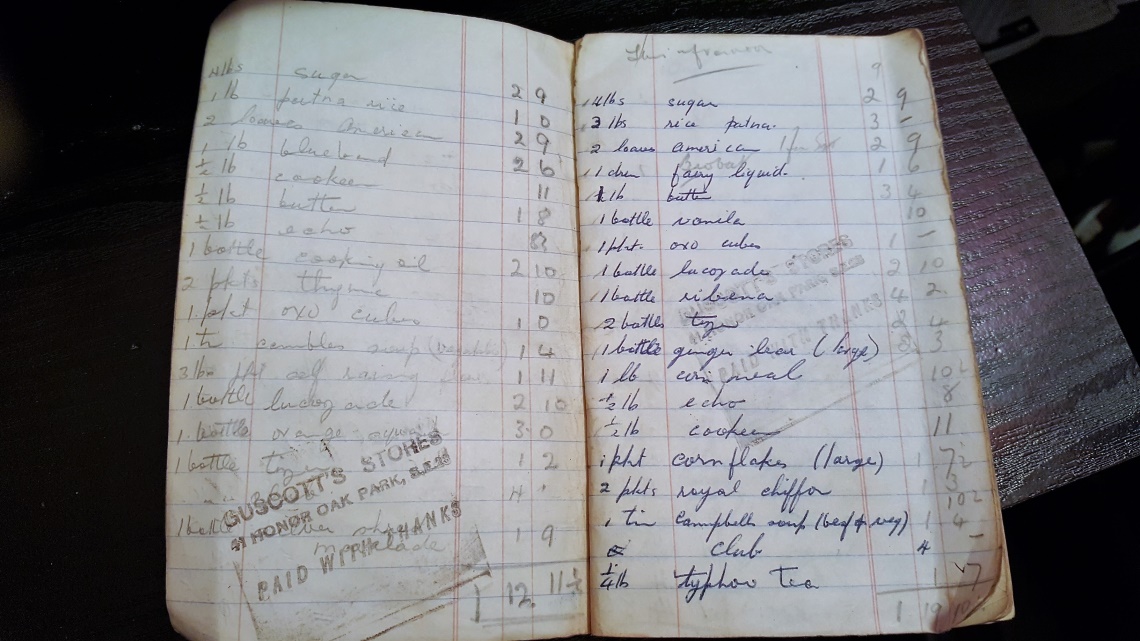 4 lbs sugar 2 9
1 lb patna rice 1 0
2 loaves American 2 9
1 lb blueband 2 6
½ lb cookeen 11
½ lb butter 1 8
½ lb echo 8½
1 bottle cooking oil 2 10
2 pkts thyme 10
1 pkt oxo cubes 1 0
1 tin cambles soup (vegetable) 1 4
3 lbs self raising flour 1 11
1 bottle lucozade 2 10
1 bottle orange squash 3 0
1 bottle tizer 1 2
4
GUSCOTT'S STORES
41 HONOR OAK PARK, S.E.23
PAID WITH THANKS
marmalade 1 9
1 12 11½
9
4 lbs sugar 2 9
3 lbs rice patna 3 -
2 loaves american 2 9
1 drum fairy liquid 1 6
1 lb butter 3 4
1 bottle vanila 10
1 pkt oxo cubes 1 -
1 bottle lucozade 2 10
1 bottle ribena 4 2
2 bottles tizer 2 4
1 bottle ginger bear (large) 3
1 lb corn meal 10½
½ lb echo 8
½ lb cookeen 11
1 pkt cornflakes (large) 1 7½
2 pkts royal chiffon 1 3
10½
1 tin campbells soup (beef & veg) 1 4
club 4 -
¼ lb typhoo tea 1 7
1 19 10
GUSCOTT'S STORES
41 HONOR OAK PARK, S.E.23
PAID WITH THANKS